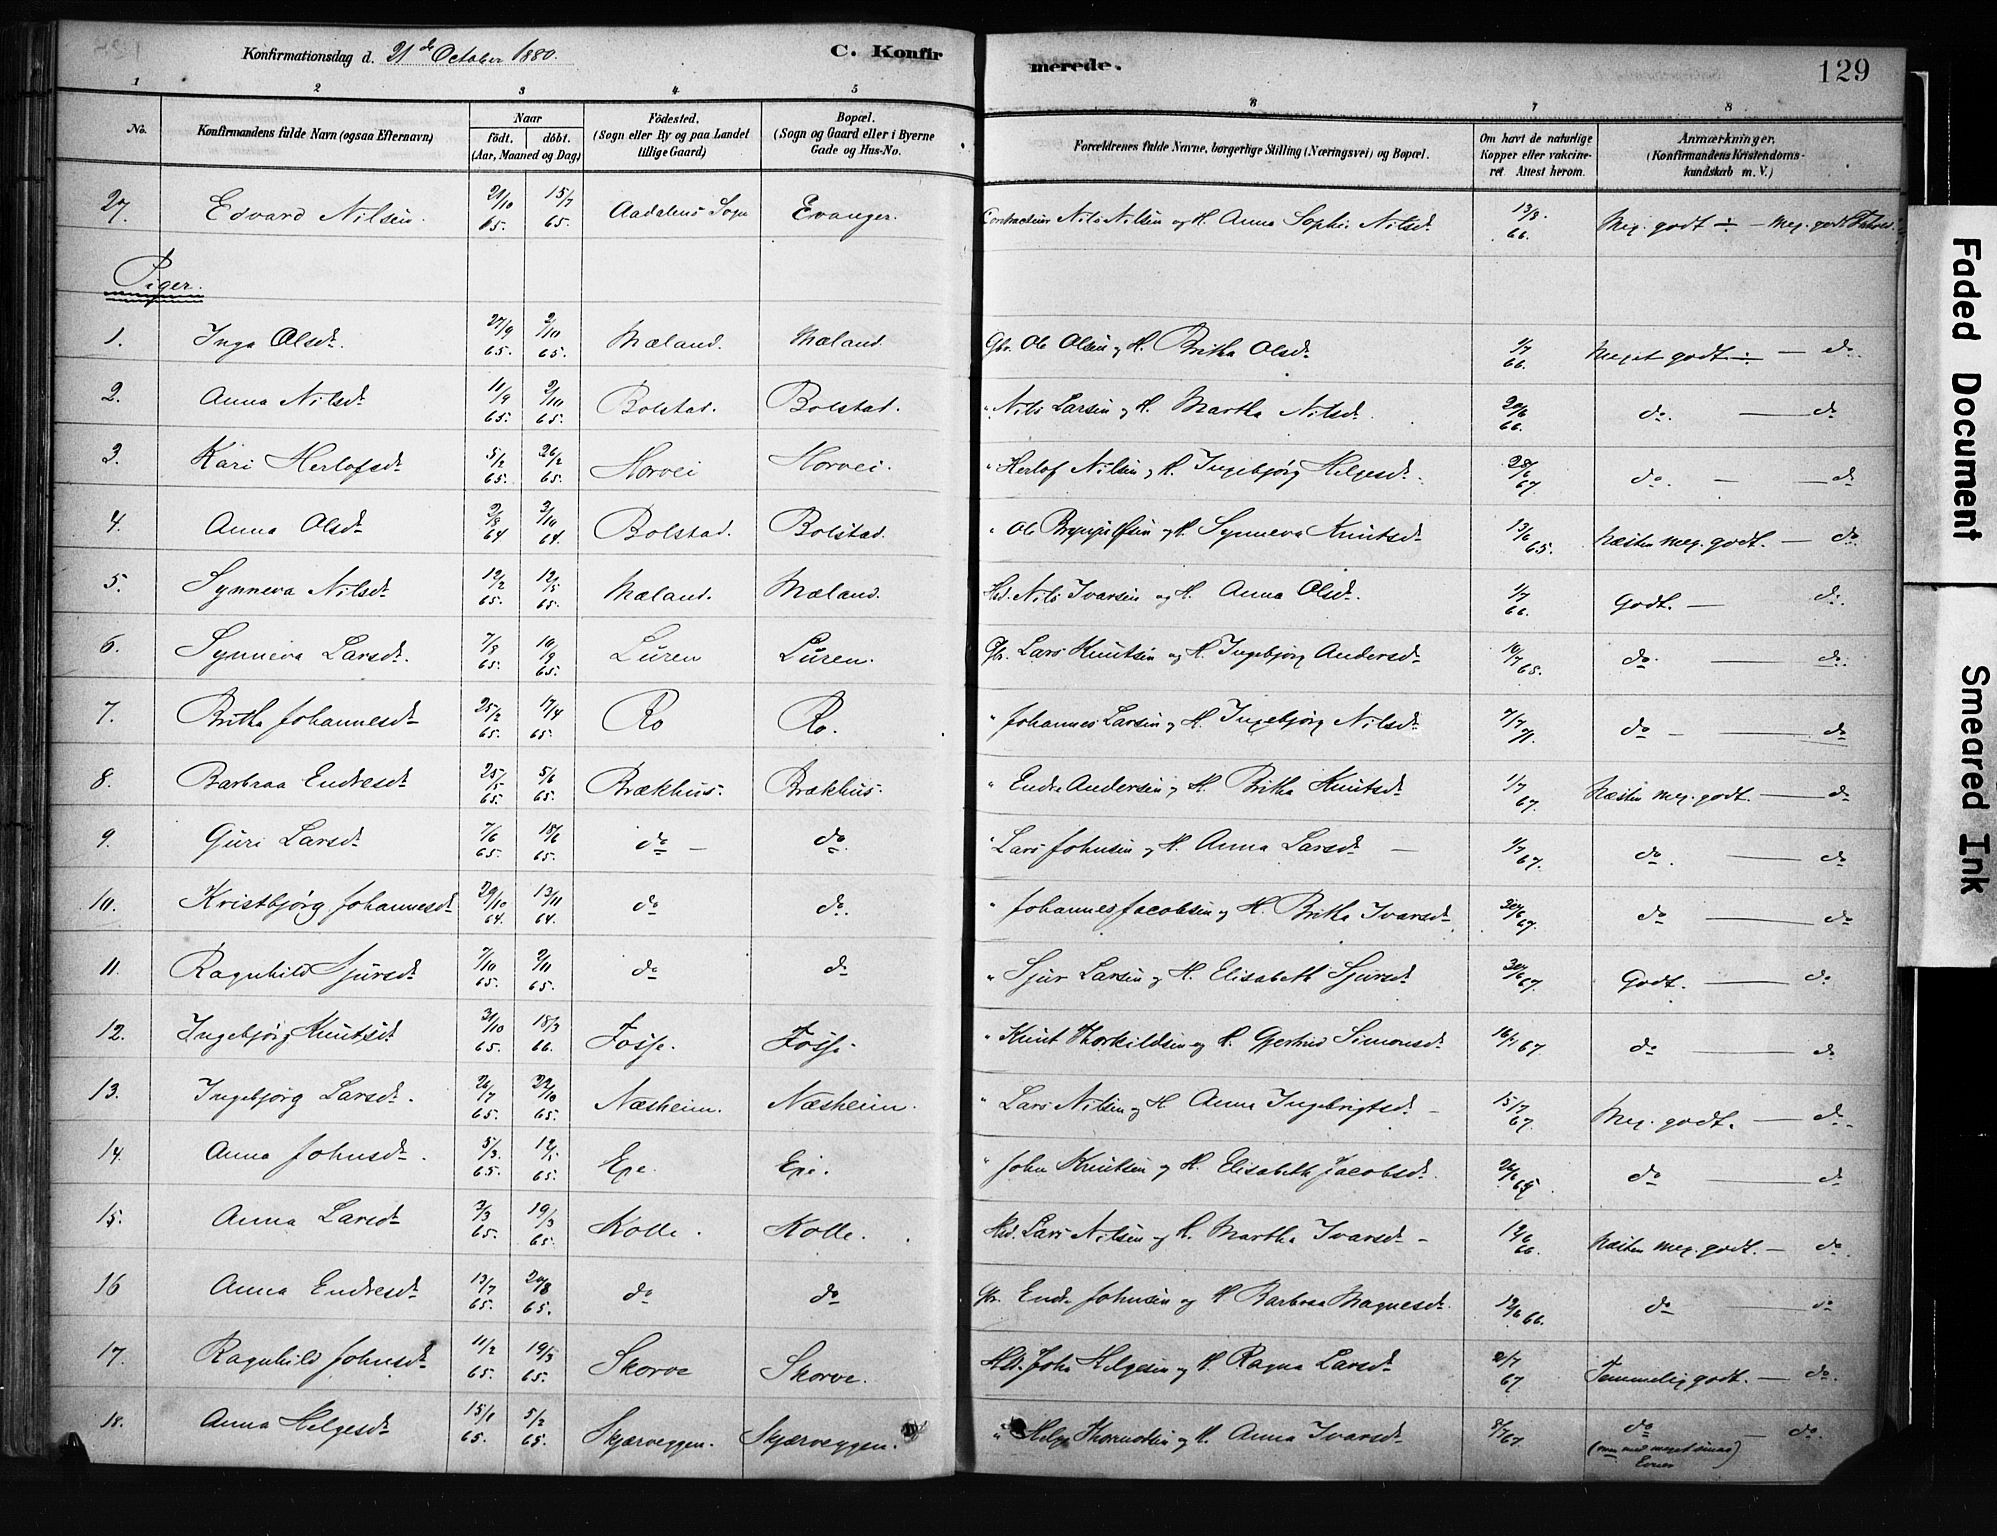 Konfirmationsdag d. 21de October 1880.
C. Konfirmerede.
129
1 2 3 4 5 6 7 8
No.
Konfirmandens fulde Navn (ogsaa Efternavn)
Naar
födt. döbt.
(Aar, Maaned og Dag)
Födested.
(Sogn eller By og paa Landet
tillige Gaard)
Bopæl.
(Sogn og Gaard eller i Byerne
Gade og Hus-No.
Forældrenes fulde Navne, borgerlige Stilling (Næringsvei) og Bopæl.
Om havt de naturlige
Kopper eller vakcine-
ret Attest herom.
Anmærkninger.
(Konfirmandens Kristendoms-
kundskab m. V.)
27. Edvard Nilsen. 21/10 65. 15/7 65. Aadalens Sogn Evanger. Contracteur Nils Nilsen og H. Anna Sophie Nilsdt 13/8. 66. Meg. godt ÷ — Meg. godt
Piger.
1. Inga Olsdt. 27/9 65. 2/10 65. Mæland. Mæland Gbr. Ole Olsen og H. Britha Olsdt 1/7 66. Meget godt ÷ — do.
2. Anna Nilsdt 11/9 65. 2/10 65. Bolstad. Bolstad. " Nils Larsen og H. Martha Nilsdt. 20/6 66. do. — do
3. Kari Herlofsdt 5/2 65. 26/2 65. Horvei Horvei. " Herlof Nilsen og H. Ingebjørg Helgesdt. 28/6 67. do. — do
4. Anna Olsdt 2/8 64 2/10 64. Bolstad. Bolstad. " Ole Brynjulfsen og H. Synneva Knutsdt 13/6 65. Næsten meg. godt. — do.
5. Synneva Nilsdt 12/2 65. 12/5 65. Mæland. Mæland. Hsd. Nils Ivarsen og H. Anna Olsdt. 1/7 66. Godt. — do.
6. Synneva Larsdt. 7/8 65. 10/9 65. Luren Luren. Gbr. Lars Knutsen og H. Ingebjørg Andersdt do. — do.
7. Britha Johannesdt 25/2 65. 17/4 65. Ro Ro. " Johannes Larsen og H. Ingebjørg Nilsdt. 7/7 71. do — do
8. Barbraa Endresdt 25/5 65. 5/6 65. Brækhus. Brækhus. " Endre Andersen og H. Britha Knutsdt 1/7 67. Næsten meg. godt. — do
9. Guri Larsdt 7/6 65. 18/6 65. do — do. " Lars Johnsen og H. Anna Larsdt — 1/7 67. do. — do
10. Kristbjørg Johannesdt 29/10 64. 13/11 64. do do. " Johannes Jacobsen og H. Britha Ivarsdt 30/6 67. do — do
11. Ragnhild Sjursdt 7/10 65. 2/11 65. do do " Sjur Larsen og H. Elisabeth Sjursdt 30/6 67. Godt. — do
12. Ingebjørg Knutsdt 31/10 65. 18/3 66. Fosse. Fosse. " Knut Thorkildsen og H. Gjertrud Simonsdt 16/7 67 do — do
13. Ingebjørg Larsdt. 26/7 65. 22/10 65. Næsheim. Næsheim. " Lars Nilsen og H. Anna Ingebrigtsdt. — 15/7 67. Meg. godt. — do.
14. Anna Johnsdt. 5/3. 65. 12/5 65. Eje. Eje. " John Knutsen og H. Elisabeth Jacobsdt. do — do
15. Anna Larsdt 3/3 65. 19/3 65. Kolle. Kolle. Hsd. Lars Nilsen og H. Martha Ivarsdt — 12/6 66. Næsten meg. godt. — do.
16 Anna Endresdt 13/7 65. 20/8 65. do do Gbr. Endre Johnsen og H. Barbraa Magnesdt. 12/6 66. do do
17. Ragnhild Johnsdt 11/2 65. 19/3 65. Skorve Skorve. Hsd. John Helgesen og H. Ragna Larsdt 2/7 67 Temmelig godt. — do.
18. Anna Helgesdt 15/1 65. 5/2 65. Skjærveggen. Skjærveggen. " Helge Thormodsen og H. Anna Ivarsdt — 8/7 67. do — do.
(men med meget smaa)
Evner
Faded Document
Smeared Ink